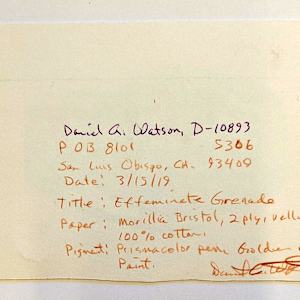 Daniel A. Watson, D-10893
P OB 8101 5306
San Luis Obispo, CA. 93409
Date: 3/15/19
Title: Effeminate Grenade
Paper: Morilla Bristol, 2 ply, vell
100% cotton.
Pigment: Prismacolor pen, Golden
Paint.